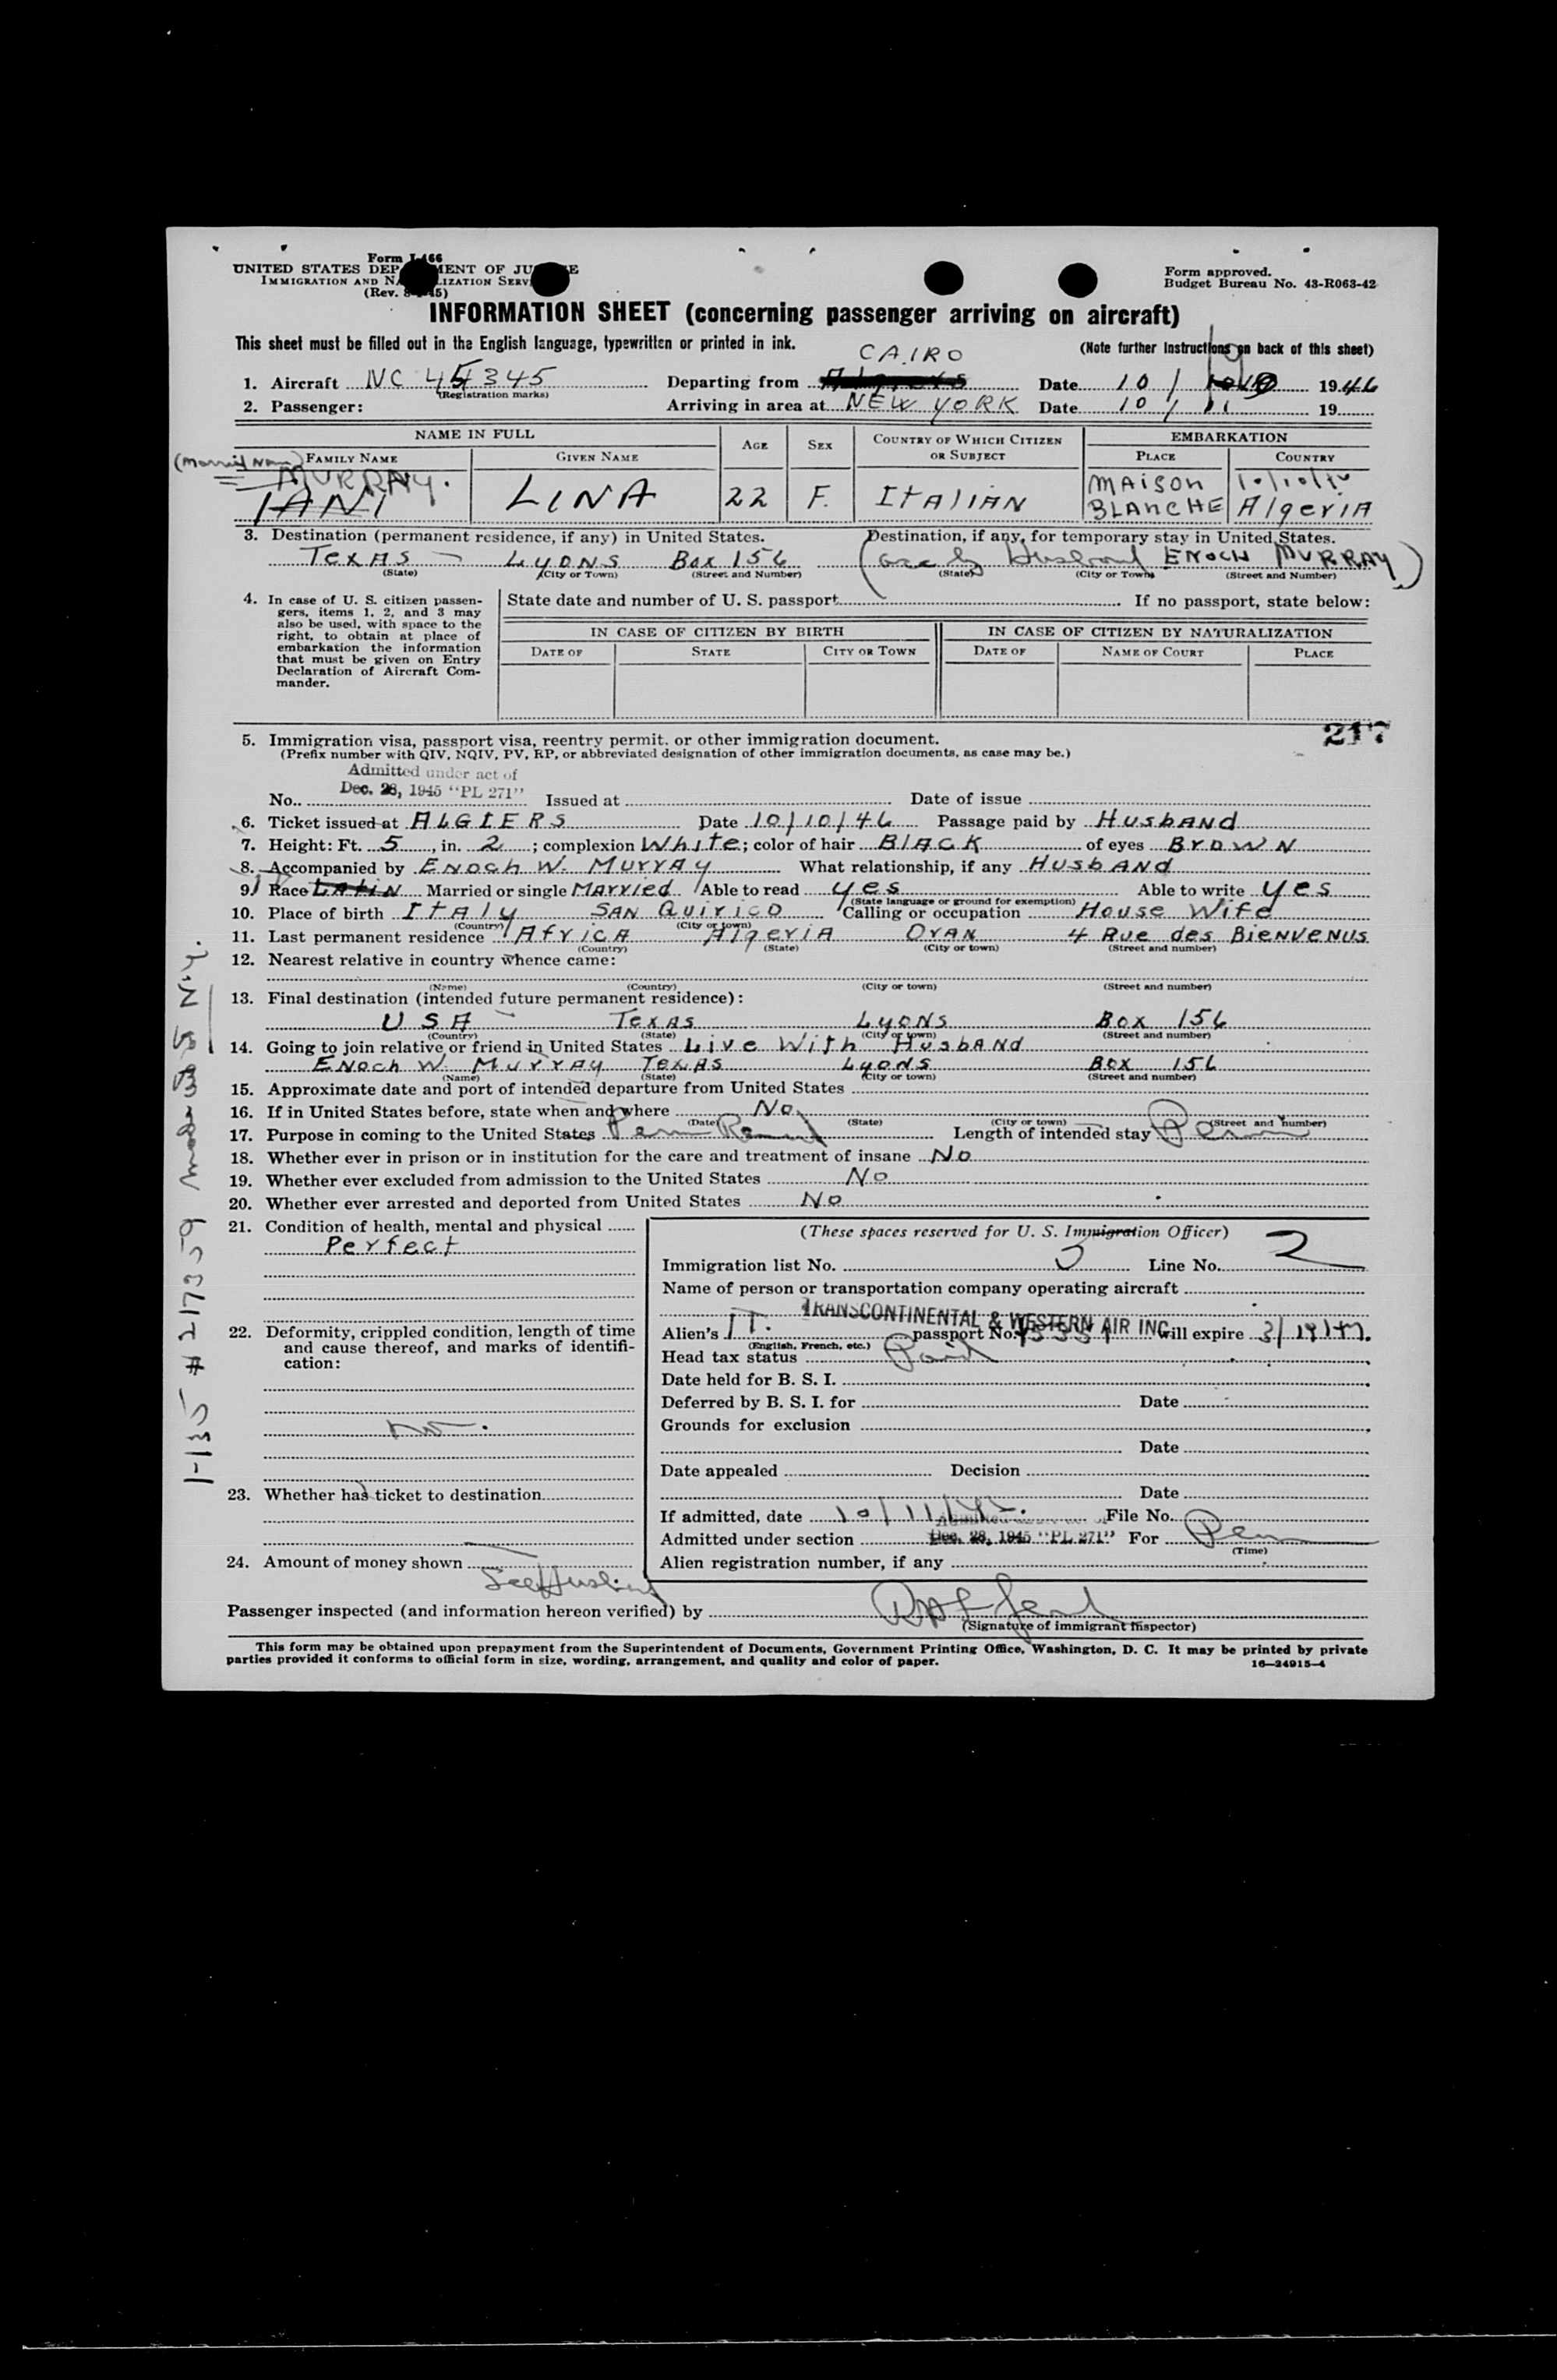 Form I-466
UNITED STATES DEPARTMENT OF JUSTICE
IMMIGRATION AND NATURALIZATION SERVICE
(Rev. 45)
Form approved.
Budget Bureau No. 43-R063-42
INFORMATION SHEET (concerning passenger arriving on aircraft)
This sheet must be filled out in the English language, typewritten or printed in ink.
(Note further instructions on back of this sheet)
CAIRO
1. Aircraft NC 45345 Departing from Algiers Date 10/ 9 1946
(Registration marks)
2. Passenger: Arriving in area at NEW YORK Date 10/11 19
NAME IN FULL AGE SEX COUNTRY OF WHICH CITIZEN OR SUBJECT EMBARKATION
(Married Name) FAMILY NAME GIVEN NAME PLACE COUNTRY
MURRAY. MAISON 10/10/46
IANI LINA 22 F. ITALIAN BLANCHE AlgeriA
3. Destination (permanent residence, if any) in United States. Destination, if any, for temporary stay in United States.
TEXAS LYONS Box 156 Husband ENOCH MURRAY)
(State) (City or Town) (Street and Number) (State) (City or Town) (Street and Number)
4. In case of U. S. citizen passengers, items 1, 2, and 3 may also be used, with space to the right, to obtain at place of embarkation the information that must be given on Entry Declaration of Aircraft Commander.
State date and number of U. S. passport If no passport, state below:
IN CASE OF CITIZEN BY BIRTH IN CASE OF CITIZEN BY NATURALIZATION
DATE OF STATE CITY OR TOWN DATE OF NAME OF COURT PLACE
217
5. Immigration visa, passport visa, reentry permit, or other immigration document.
(Prefix number with QIV, NQIV, PV, RP, or abbreviated designation of other immigration documents, as case may be.)
Admitted under act of
Dec. 28, 1945 "PL 271"
No. Issued at Date of issue
6. Ticket issued at ALGIERS Date 10/10/46 Passage paid by HusbAND
7. Height: Ft. 5, in. 2; complexion White; color of hair BlACK of eyes BroWN
8. Accompanied by ENOCH W. MUrrAy What relationship, if any HusbAND
9. Race LATIN Married or single MArried Able to read yes Able to write yes
(State language or ground for exemption)
10. Place of birth ITAly SAN QuiriCO Calling or occupation House Wife
(Country) (City or town)
11. Last permanent residence AfriCA AlgeriA OrAN 4 Rue des BienVenus
(Country) (State) (City or town) (Street and number)
12. Nearest relative in country whence came:
(Name) (Country) (City or town) (Street and number)
13. Final destination (intended future permanent residence):
USA TexAs LyoNs Box 156
(Country) (State) (City or town) (Street and number)
14. Going to join relative or friend in United States Live With HusbAND
ENoch W. MurrAy TexAs Lyons Box 156
(Name) (State) (City or town) (Street and number)
15. Approximate date and port of intended departure from United States
16. If in United States before, state when and where No
(Date) (State) (City or town) (Street and number)
17. Purpose in coming to the United States Perm Length of intended stay Perm
18. Whether ever in prison or in institution for the care and treatment of insane No
19. Whether ever excluded from admission to the United States No
20. Whether ever arrested and deported from United States No
21. Condition of health, mental and physical
Perfect
22. Deformity, crippled condition, length of time and cause thereof, and marks of identification:
23. Whether has ticket to destination
24. Amount of money shown
See Husband
(These spaces reserved for U. S. Immigration Officer)
Immigration list No. 3 Line No. 2
Name of person or transportation company operating aircraft
TRANSCONTINENTAL & WESTERN AIR INC.
Alien's IT. passport No. will expire 3/19/47.
(English, French, etc.)
Head tax status Paid
Date held for B. S. I.
Deferred by B. S. I. for Date
Grounds for exclusion
Date
Date appealed Decision
Date
If admitted, date 10/11/46. File No.
Admitted under section Dec. 28, 1945 "PL 271" For Perm
(Time)
Alien registration number, if any
Passenger inspected (and information hereon verified) by
(Signature of immigrant inspector)
This form may be obtained upon prepayment from the Superintendent of Documents, Government Printing Office, Washington, D. C. It may be printed by private
parties provided it conforms to official form in size, wording, arrangement, and quality and color of paper.
16—24915-4